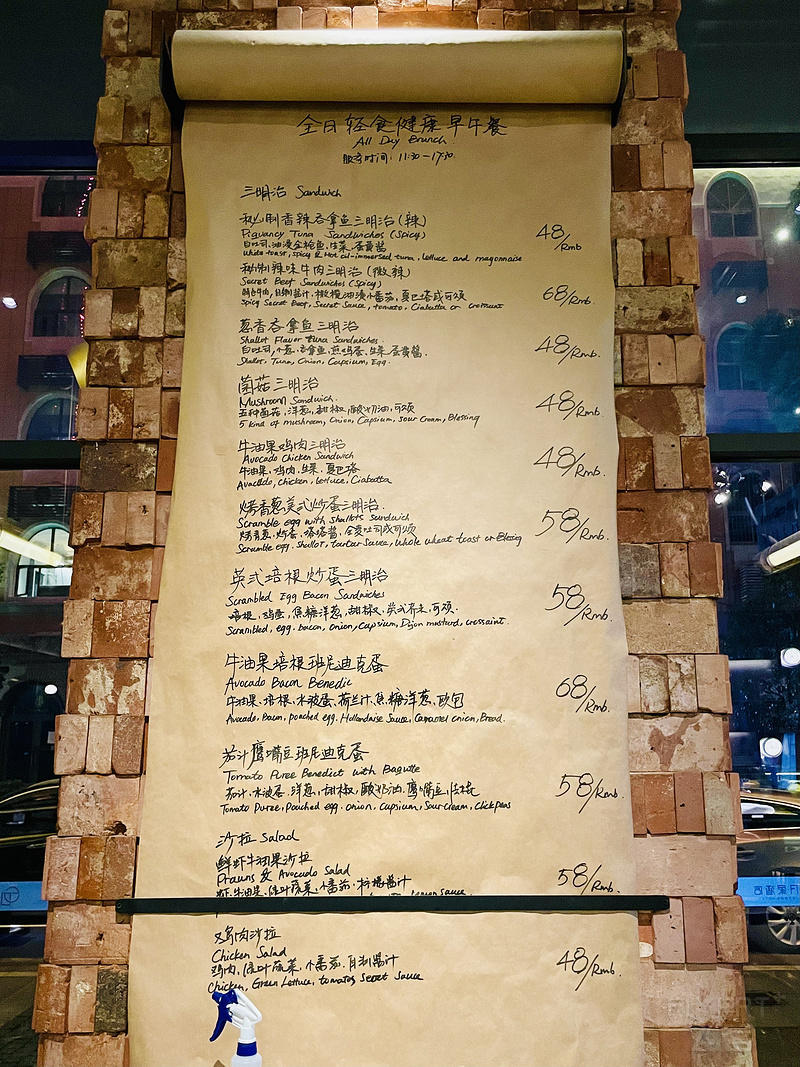 全日轻食健康早午餐
All Day Brunch
服务时间: 11:30-17:30.
三明治 Sandwich
秘制香辣吞拿鱼三明治(辣)
Piguancy Tuna Sandwiches (Spicy)
白吐司,油浸金枪鱼,生菜,蛋黄酱
White toast, spicy & Hot oil-immersed tuna, lettuce and magonnaise
48/Rmb
秘制辣味牛肉三明治(微辣)
Secret Beef Sandwiches (Spicy)
秘制酱汁,橄榄油渍小番茄,夏巴塔或可颂
Spicy Secret Beef, Secret Sauce, tomato, Ciabatta or croissant
68/Rmb.
葱香吞拿鱼三明治
Shallot Flavor tuna Sandwiches.
白吐司,小葱,吞拿鱼,煎鸡蛋,生菜,蛋黄酱.
Shallot, Tuna, Onion, Capsium, Egg.
48/Rmb.
菌菇三明治
Mushroom Sandwich.
五种菌菇,洋葱,甜椒,酸奶油,可颂
5 kind of mushroom, Onion, Capsium, Sour Cream, Blessing
48/Rmb.
牛油果鸡肉三明治
Avocado Chicken Sandwich
牛油果,鸡肉,生菜,夏巴塔
Avacddo, chicken, lettuce, Ciabatta
48/Rmb.
烤香葱美式炒蛋三明治.
Scramble egg with shallots sandwich
烤香葱,炒蛋,塔塔酱,全麦吐司或可颂
Scramble egg. Shallot, tartar Sauce, whole wheat toast or Blessing
58/Rmb.
英式培根炒蛋三明治
Scrambled Egg Bacon Sandwiches
培根,鸡蛋,焦糖洋葱,甜椒,英式芥末,可颂.
Scrambled, egg. bacon, onion, capsium, Dijon mustard, crossaint.
58/Rmb.
牛油果培根班尼迪克蛋
Avocado Bacon Benedic
牛油果,培根,水波蛋,荷兰汁,焦糖洋葱,欧包
Avocado, Bacon, poached egg. Hollandaise Sauce, Caramel onion, Bread.
68/Rmb.
茄汁鹰嘴豆班尼迪克蛋
Tomato Puree Benedict with Baguette
茄汁,水波蛋,洋葱,甜椒,酸奶油,鹰嘴豆,法棍
Tomato Puree, Poached egg. onion, capsium, Sour cream, clickpeas
58/Rmb.
沙拉 Salad
鲜虾牛油果沙拉
Prawns & Avocado Salad
虾,牛油果,绿叶蔬菜,小番茄,柠檬酱汁
Lemon Sauce.
58/Rmb.
鸡肉沙拉
Chicken Salad
鸡肉,绿叶蔬菜,小番茄,自制酱汁
Chicken, Green Lettuce, tomatos Secret Sauce
48/Rmb.